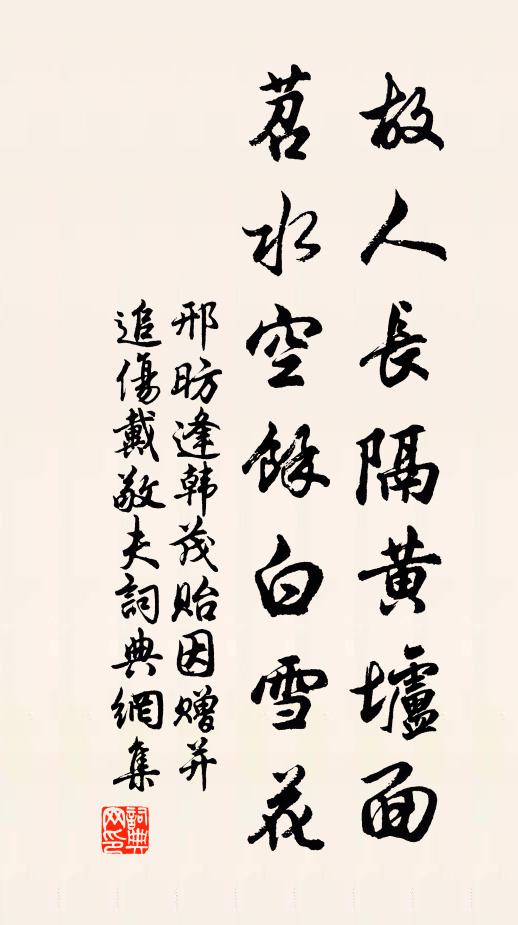 故人長隔黃壚面
苕水空餘白雪花
邢昉逢韩茂贻因赠并
追傷戴敬夫詞典網集
詞典
网印